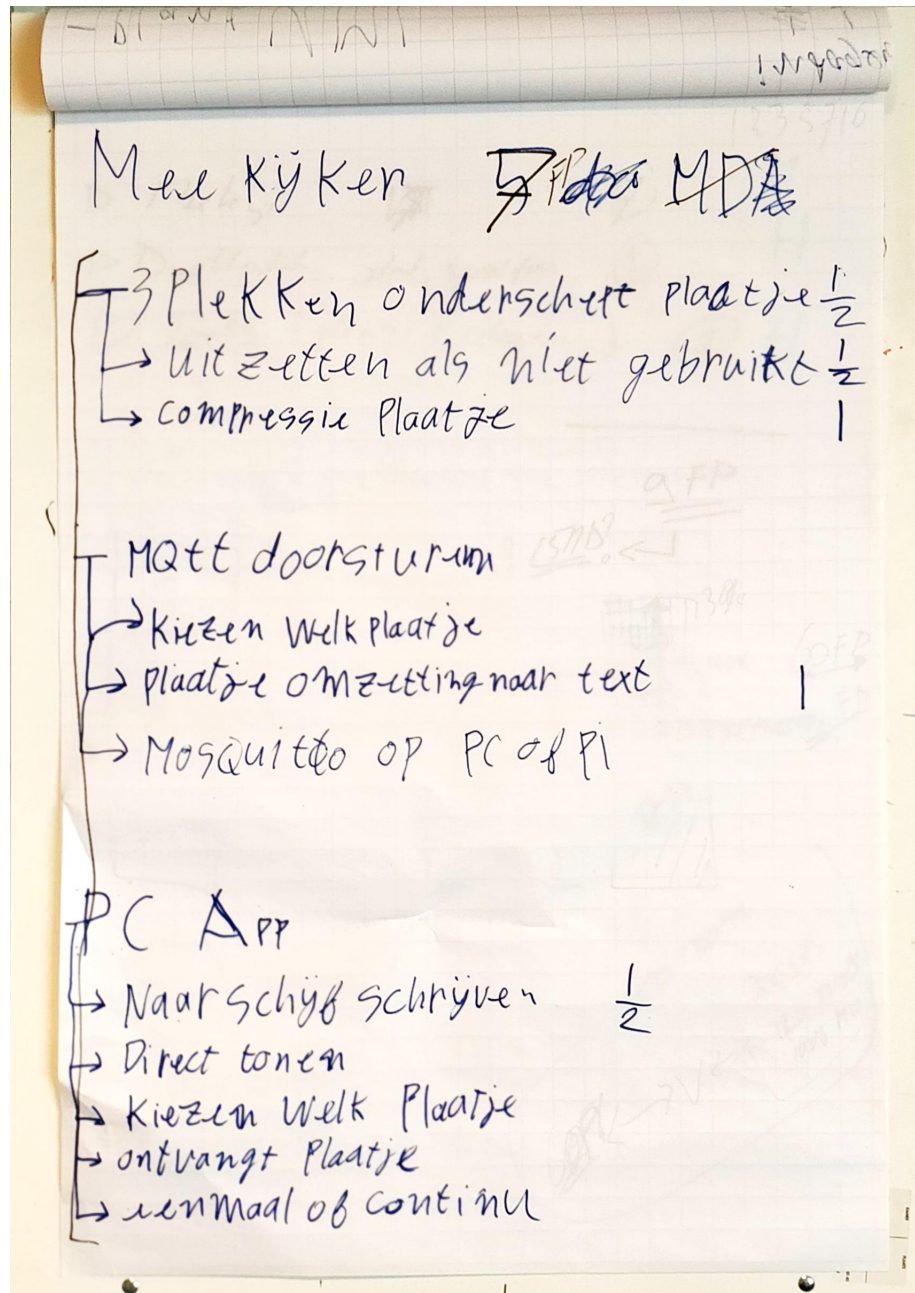 Meekijker FP
3 Plekken onderschept plaatje 1/2
→ Uitzetten als niet gebruikt 1/2
→ compressie Plaatje 1
MQtt doorsturen
→ Kiezen Welk plaatje
→ plaatje omzetting naar text 1
→ Mosquitto op PC of Pi
PC App
→ Naar schijf schrijven 1/2
→ Direct tonen
→ Kiezen Welk Plaatje
→ ontvangt Plaatje
→ eenmaal of continu